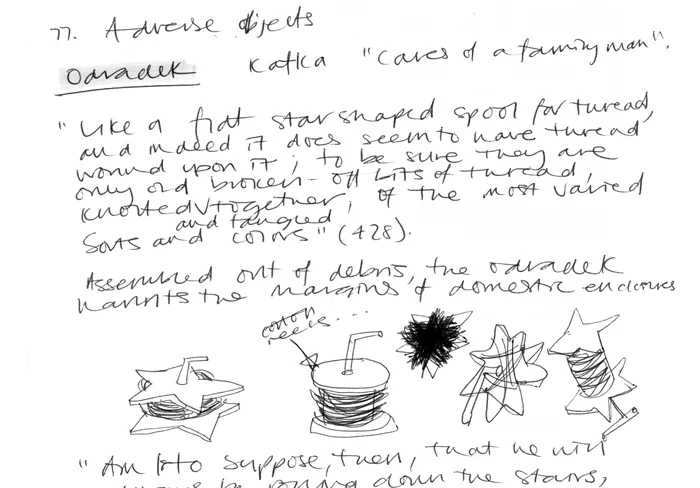 77. Adverse objects
Odradek Kafka "Cares of a family man".
"Like a flat star shaped spool for thread,
and indeed it does seem to have thread
wound upon it; to be sure they are
only old broken-off bits of thread,
knotted together, of the most varied
and tangled
Sorts and colors" (428).
Assembled out of debris, the odradek
haunts the margins of domestic enclosures
cotton
reels...
"Am I to suppose, then, that he will
always be rolling down the stairs,